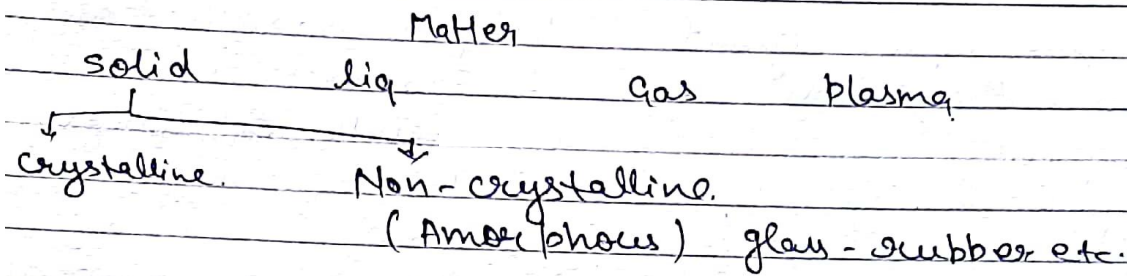 Matter
solid liq Gas plasma
crystalline. Non-crystalline.
(Amorphous) glass - rubber etc.